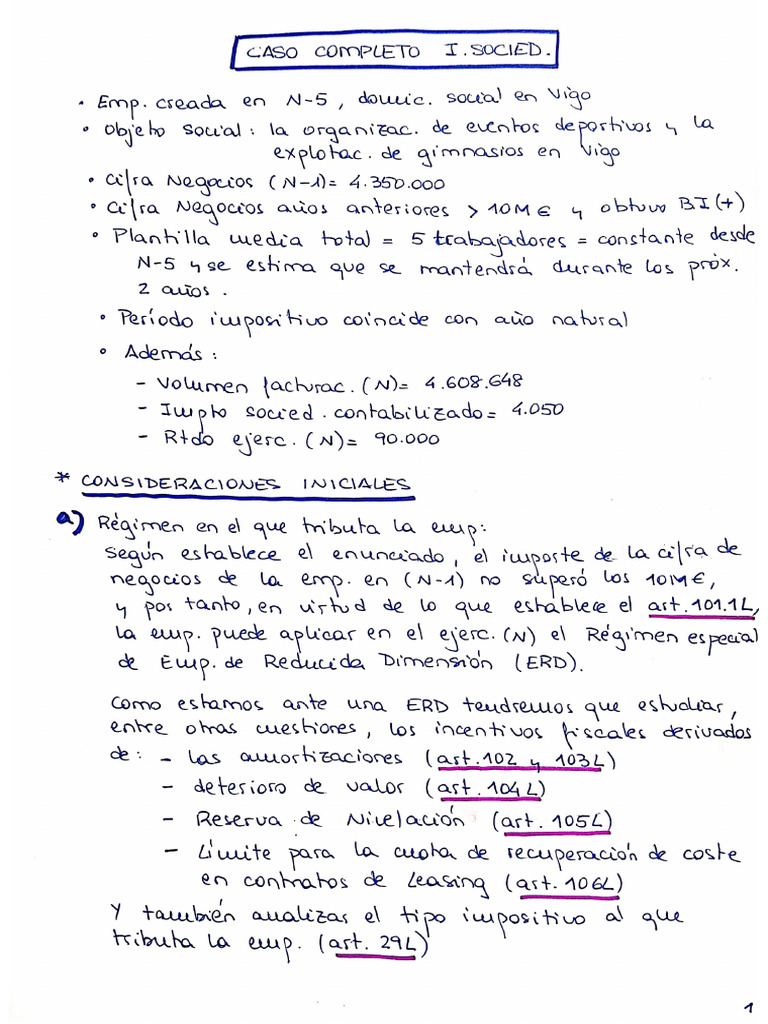 CASO COMPLETO I. SOCIED.
• Emp. creada en N-5, domic. social en Vigo
• Objeto social: la organizac. de eventos deportivos y la
explotac. de gimnasios en Vigo
• Cifra Negocios (N-1)= 4.350.000
• Cifra Negocios años anteriores > 10M€ y obtuvo BI(+)
• Plantilla media total = 5 trabajadores = constante desde
N-5 y se estima que se mantendrá durante los próx.
2 años.
• Período impositivo coincide con año natural
• Además:
- Volumen facturac. (N)= 4.608.648
- Impto socied. contabilizado= 4.050
- Rtdo ejerc. (N)= 90.000
* CONSIDERACIONES INICIALES
a) Régimen en el que tributa la emp:
Según establece el enunciado, el importe de la cifra de
negocios de la emp. en (N-1) no superó los 10M€,
y por tanto, en virtud de lo que establece el art.101.1L,
la emp. puede aplicar en el ejerc. (N) el Régimen especial
de Emp. de Reducida Dimensión (ERD).
Como estamos ante una ERD tendremos que estudiar,
entre otras cuestiones, los incentivos fiscales derivados
de: - las amortizaciones (art.102 y 103L)
- deterioro de valor (art. 104L)
- Reserva de Nivelación (art. 105L)
- Límite para la cuota de recuperación de coste
en contratos de Leasing (art. 106L)
Y también analizar el tipo impositivo al que
tributa la emp. (art. 29L)
1